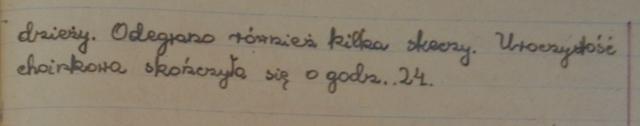 dzieży. Odegrano również kilka skeczy. Uroczystość
choinkowa skończyła się o godz..24.